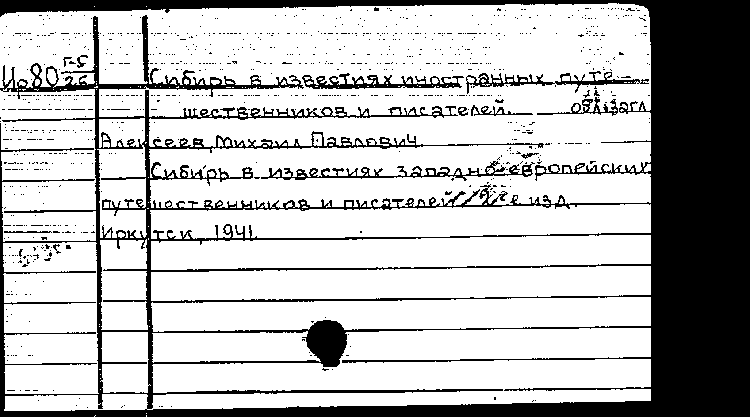 Ир80 Г-5
26
Сибирь в известиях иностранных путе-
шественников и писателей. обл. загл.
Алексеев, Михаил Павлович.
Сибирь в известиях западно-европейских
путешественников и писателей е изд.
Иркутск, 1941.